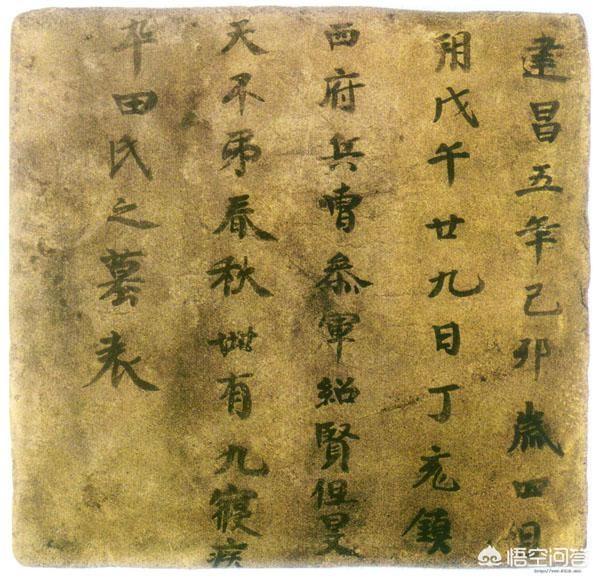 建昌五年己卯歲四月
朔戊午廿九日丁亥鎮
西府兵曹參軍紹賢但旻
天不弔春秋卌有九寢疾
卒田氏之墓表
悟空问答